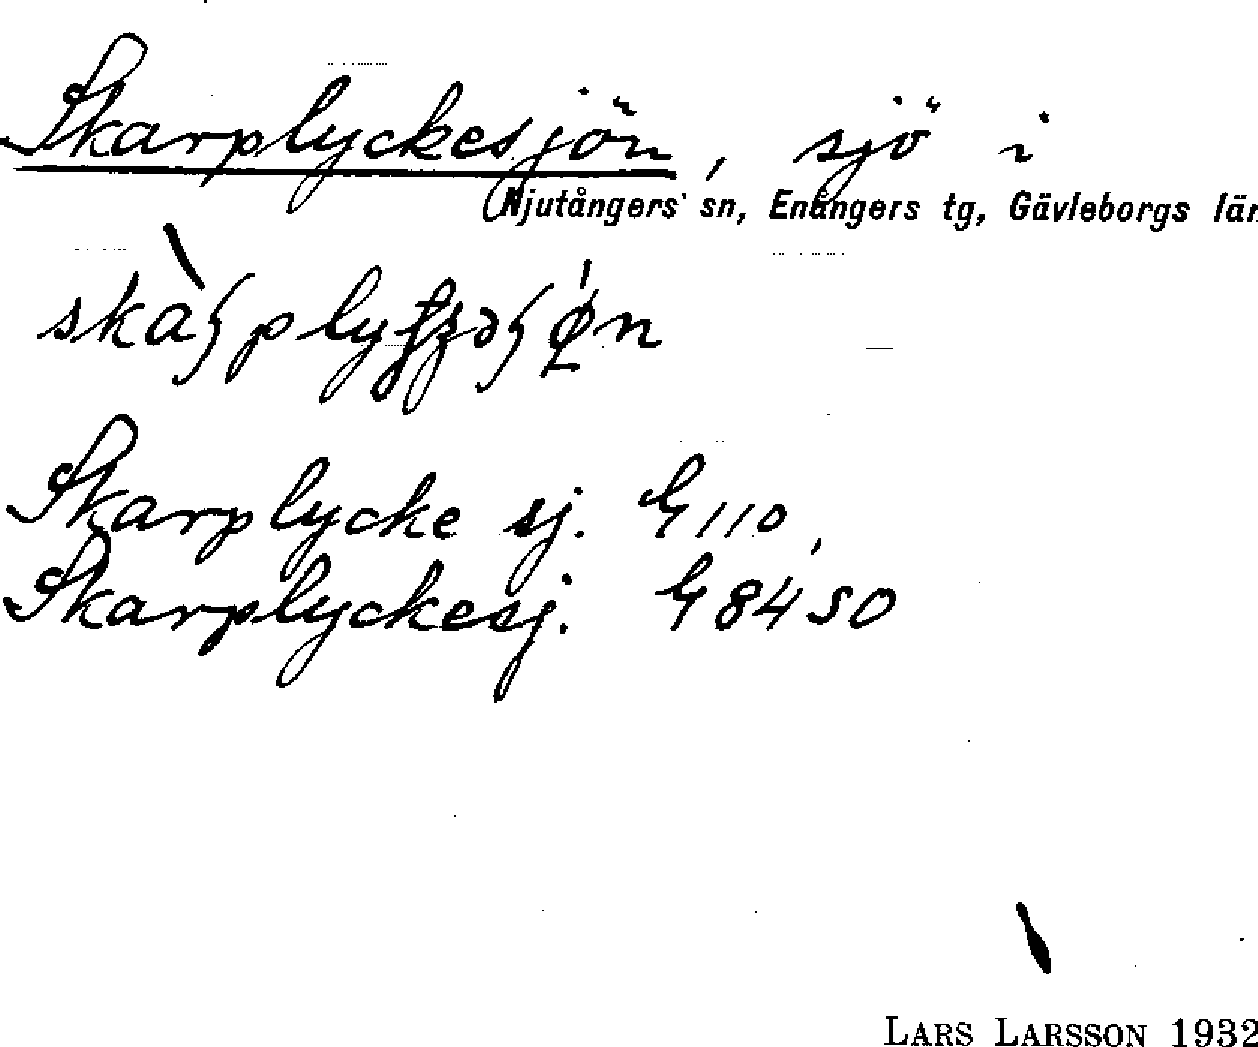 Skarplyckesjön, sjö i
Njutångers sn, Enångers tg, Gävleborgs län
Skarplycke sj. G 110,
Skarplyckesj. G 8450
LARS LARSSON 1932